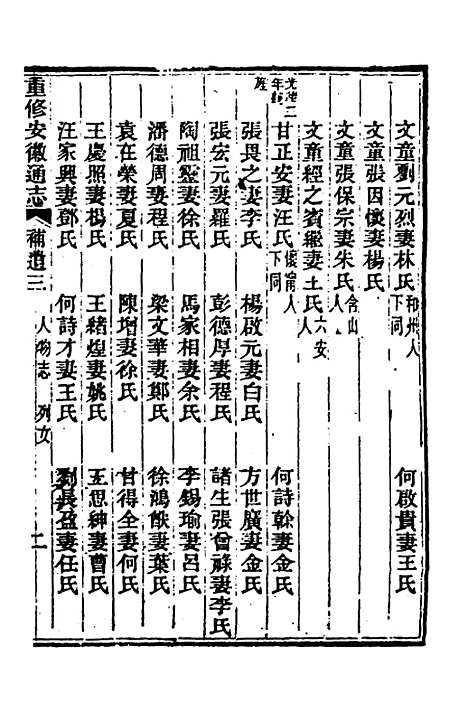 文童劉元烈妻林氏和州人下同 何啟貴妻王氏
文童張因懷妻楊氏
文童張保宗妻朱氏含山人
文童經之賓繼妻王氏六安人
甘正安妻汪氏懷甯人下同 何詩幹妻金氏
張畏之妻李氏 楊啟元妻白氏 方世廣妻金氏
張宏元妻羅氏 彭德厚妻程氏 諸生張曾祿妻李氏
陶祖靈妻徐氏 馬家相妻余氏 李錫瑜妻呂氏
潘德周妻程氏 梁文華妻鄭氏 徐鴻猷妻葉氏
袁在榮妻夏氏 陳增妻徐氏 甘得全妻何氏
王慶照妻楊氏 王緒煌妻姚氏 王思紳妻曹氏
汪家興妻鄧氏 何詩才妻王氏 劉長盈妻任氏
重修安徽通志 補遺三 人物志 列女 二